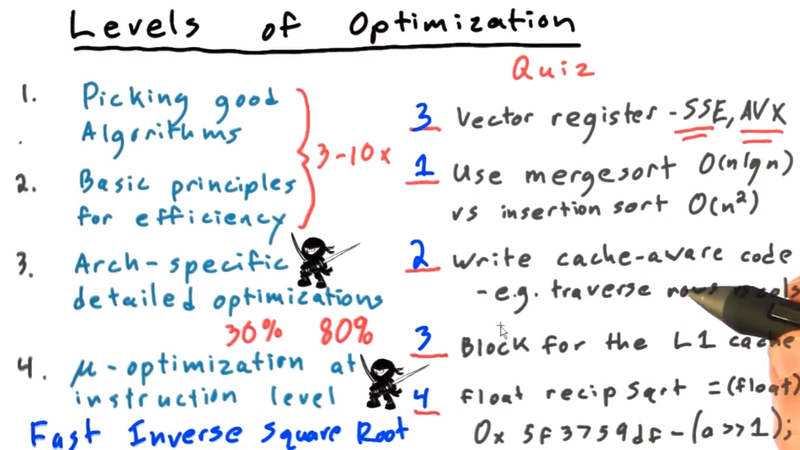 Levels of Optimization
1. Picking good
Algorithms
2. Basic principles
for efficiency
3-10x
3. Arch-specific
detailed optimizations
30% 80%
4. μ-optimization at
instruction level
Fast Inverse Square Root
Quiz
3 Vector register - SSE, AVX
1 Use mergesort O(nlgn)
vs insertion sort O(n²)
2 Write cache-aware code
- e.g. traverse
3 Block for the L1 cache
4 float recip Sqrt = (float)
0x 5f3759df - (a >> 1);